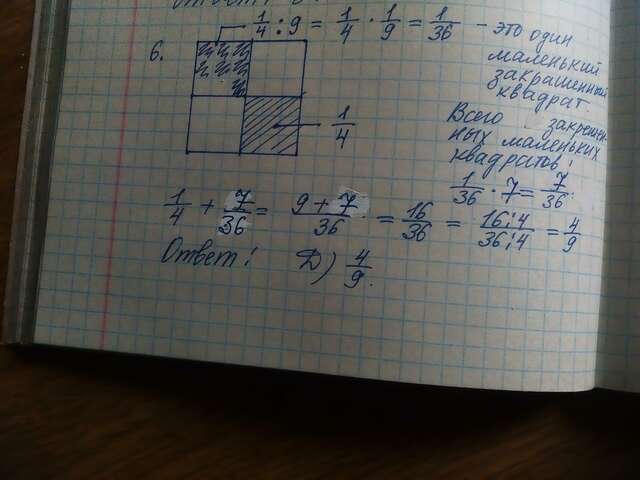 1/4 : 9 = 1/4 · 1/9 = 1/36 - это один
маленький
закрашенный
квадрат
6.
1/4
Всего закрашен-
ных маленьких
квадратов:
1/36 · 7 = 7/36.
1/4 + 7/36 = 9 + 7/36 = 16/36 = 16:4/36:4 = 4/9
Ответ: D) 4/9.